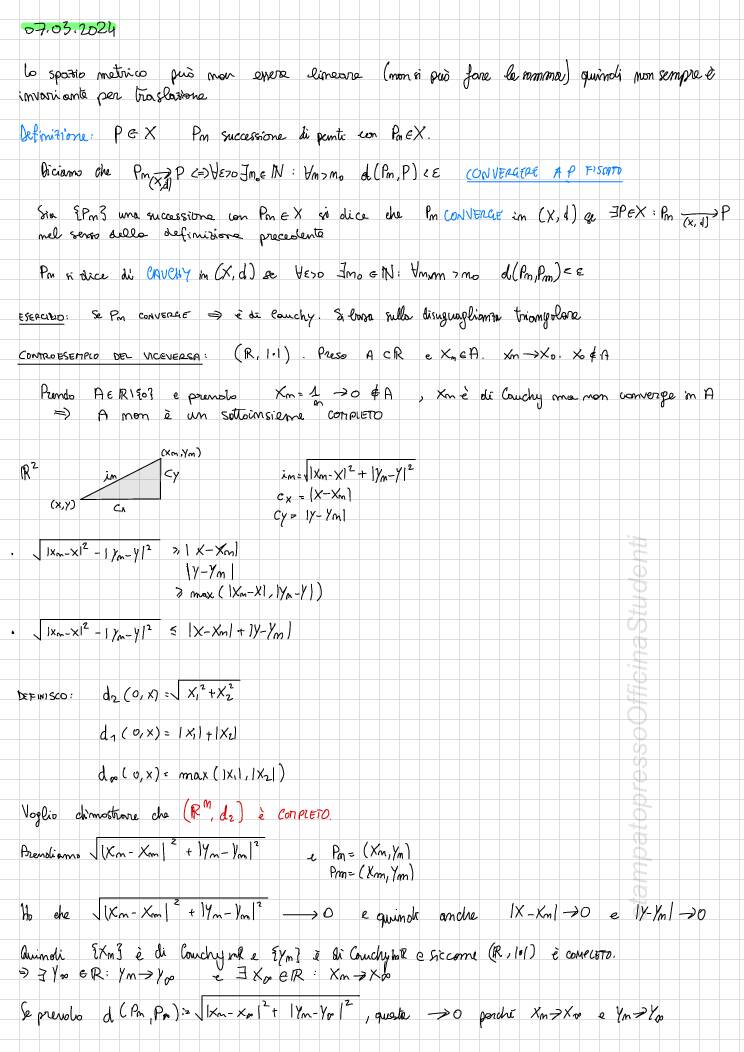 07.03.2024
Lo spazio metrico può non essere lineare (non si può fare la somma) quindi non sempre è
invariante per traslazione
Definizione: P ∈ X Pn successione di punti con Pn ∈ X.
Diciamo che Pn →(X,d) P <=> ∀ε>0 ∃n₀ ∈ ℕ : ∀n>n₀ d(Pn,P) < ε CONVERGERE A P FISSATO
Sia {Pn} una successione con Pn ∈ X si dice che Pn CONVERGE in (X,d) se ∃P∈X : Pn →(X,d) P
nel senso della definizione precedente
Pn si dice di CAUCHY in (X,d) se ∀ε>0 ∃n₀ ∈ ℕ : ∀n,m > n₀ d(Pn,Pm) < ε
ESERCIZIO: Se Pn CONVERGE ⇒ è di Cauchy. Si basa sulla disuguaglianza triangolare
CONTROESEMPIO DEL VICEVERSA: (ℝ, |·|). Preso A ⊂ ℝ e Xn ∈ A. Xn → X₀. X₀ ∉ A
Prendo A ∈ ℝ\{0} e prendo Xn = 1/n → 0 ∉ A , Xn è di Cauchy ma non converge in A
⇒ A non è un sottoinsieme COMPLETO
(Xn,Yn)
ℝ² in Cy in = √|Xn-X|² + |Yn-Y|²
(X,Y) Cx Cx = |X-Xn|
Cy = |Y-Yn|
· √|Xn-X|² - |Yn-Y|² ≥ |X-Xn|
|Y-Yn|
≥ max(|Xn-X|, |Yn-Y|)
· √|Xn-X|² - |Yn-Y|² ≤ |X-Xn| + |Y-Yn|
DEFINISCO: d₂(0,x) = √X₁² + X₂²
d₁(0,x) = |X₁| + |X₂|
d∞(0,x) = max(|X₁|, |X₂|)
Voglio dimostrare che (ℝⁿ, d₂) è COMPLETO.
Prendiamo √|Xn - Xm|² + |Yn - Ym|² e Pn = (Xn,Yn)
Pm = (Xm,Ym)
Ho che √|Xn - Xm|² + |Yn - Ym|² → 0 e quindi anche |X-Xn| → 0 e |Y-Yn| → 0
Quindi {Xn} è di Cauchy in ℝ e {Yn} è di Cauchy in ℝ e siccome (ℝ, |·|) è COMPLETO.
⇒ ∃ Y∞ ∈ ℝ : Yn → Y∞ e ∃ X∞ ∈ ℝ : Xn → X∞
Se prendo d(Pn,P∞) = √|Xn-X∞|² + |Yn-Y∞|² , questa → 0 perché Xn → X∞ e Yn → Y∞
lampatopressoOfficinaStudenti